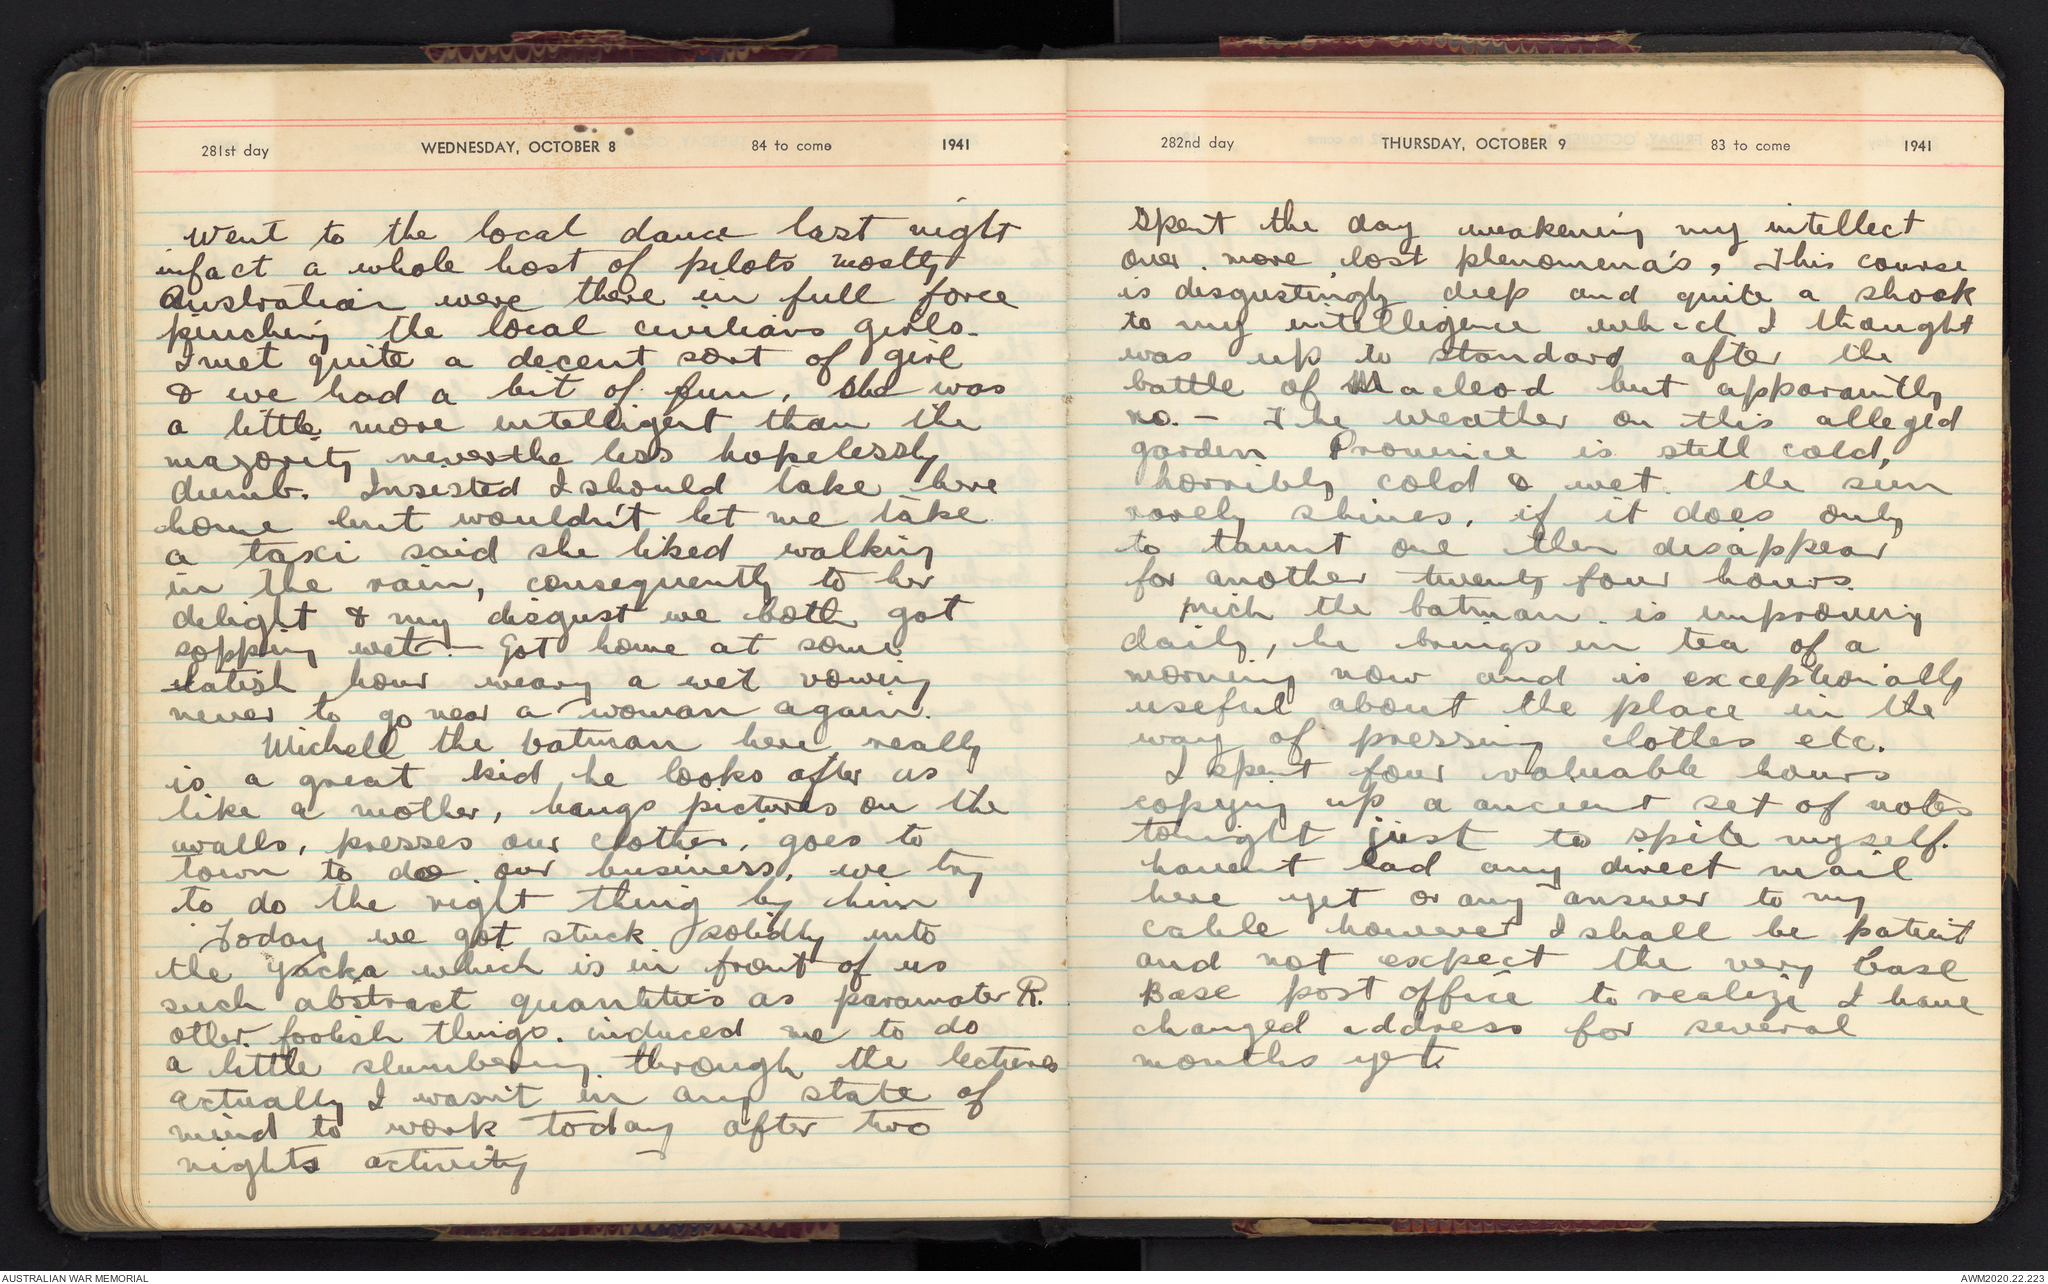 281st day WEDNESDAY, OCTOBER 8 84 to come 1941
Went to the local dance last night
infact a whole host of pilots mostly
Australian were there in full force
pinching the local civilians girls.
I met quite a decent sort of girl
& we had a bit of fun, she was
a little more intelligent than the
majority neverthe less hopelessly
dumb. Insisted I should take here
home but wouldn't let me take
a taxi said she liked walking
in the rain, consequently to her
delight & my disgust we both got
sopping wet. - Got home at some
latish hour weary a wet vowing
never to go near a woman again.
Michell the batman here really
is a great kid he looks after us
like a mother, hangs pictures on the
walls, presses our clothes, goes to
town to do our business, we try
to do the right thing by him
Today we got stuck solidly into
the yacka which is in front of us
such abstract quantities as paramater R.
other foolish things. induced me to do
a little slumbering through the lectures
actually I wasn't in any state of
mind to work today after two
nights activity -
282nd day THURSDAY, OCTOBER 9 83 to come 1941
Spent the day weakening my intellect
over more lost phenomena's, This course
is disgustingly deep and quite a shock
to my intelligence which I thought
was up to standard after the
battle of Macleod but apparantly
no. - The weather on this alleged
garden Province is still cold,
horribly cold & wet. the sun
rarely shines, if it does only
to taunt one then disappear
for another twenty four hours.
Mich the batman is improving
daily, he brings in tea of a
morning now and is exceptionally
useful about the place in the
way of pressing clothes etc.
I spent four valuable hours
copying up a ancient set of notes
tonight just to spite myself.
havent had any direct mail
here yet or any answer to my
cable however I shall be patient
and not expect the very base
Base post office to realize I have
changed address for several
months yet.
AUSTRALIAN WAR MEMORIAL
AWM2020.22.223